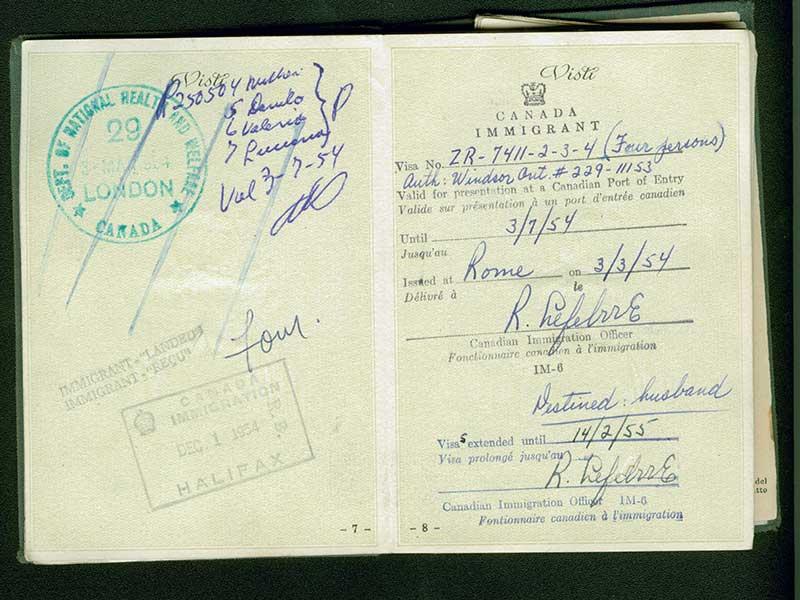 Visti
R250504 Mother
5 Danilo
6 Valerio
7 Luciana
P
Val 3-7-54
DEPT. OF NATIONAL HEALTH AND WELFARE
29
LONDON
CANADA
Four.
IMMIGRANT - "LANDED"
IMMIGRANT - "REÇU"
CANADA
IMMIGRATION
DEC. 1 1954
HALIFAX
- 7 -
Visti
CANADA
IMMIGRANT
Visa No. ZR-7411-2-3-4 (Four persons)
Auth: Windsor Ont. # 229-11153
Valid for presentation at a Canadian Port of Entry
Valide sur présentation à un port d'entrée canadien
Until 3/7/54
Jusqu'au
Issued at Rome on 3/3/54
Délivré à le
R. Lefebvre
Canadian Immigration Officer
Fonctionnaire canadien à l'immigration
IM-6
Destined: husband
Visas extended until 14/2/55
Visa prolongé jusqu'au
R. Lefebvre
Canadian Immigration Officer IM-6
Fontionnaire canadien à l'immigration
- 8 -
del